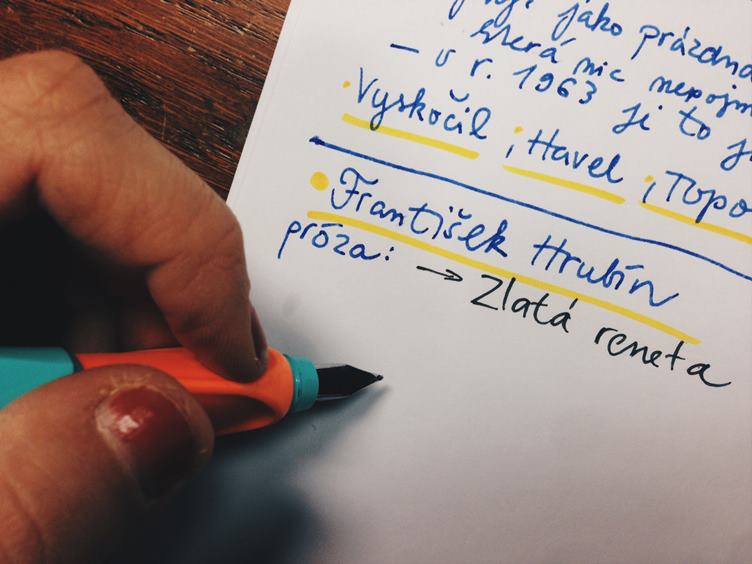 jako prázdna
která nic nepojm
– v r. 1963 ji to j
Vyskočil, Havel, Topo
František Hrubín
próza: → Zlatá reneta